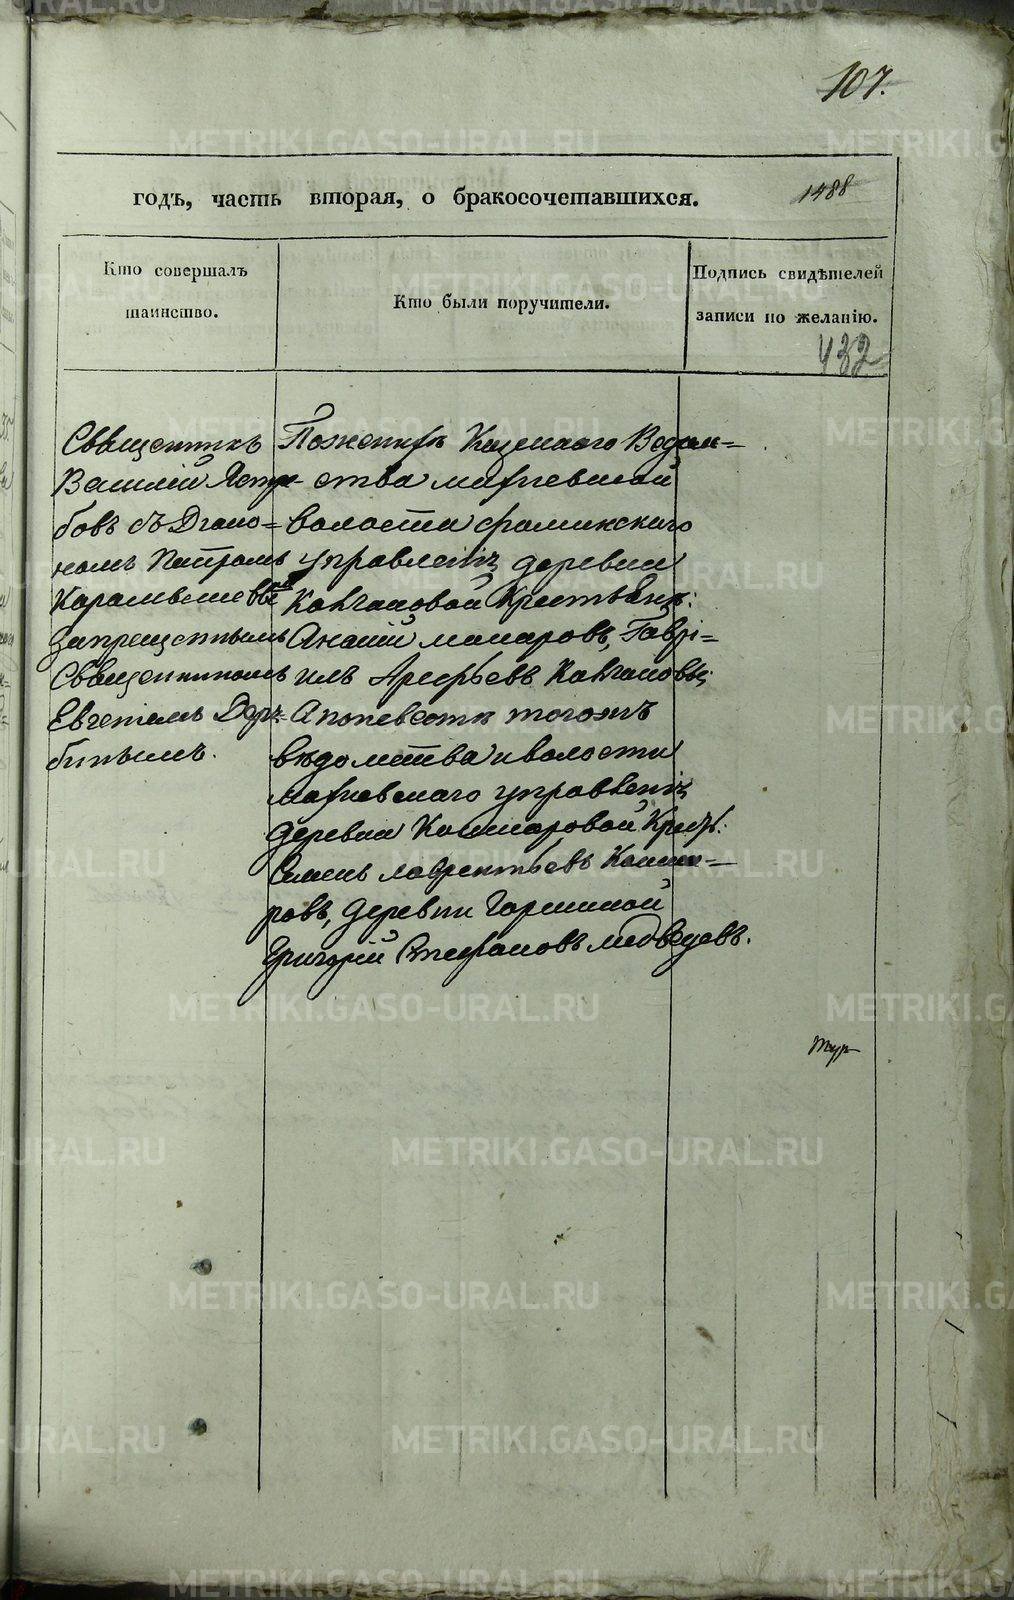 107.
годъ, часть вторая, о бракосочетавшихся.
1488
Кто совершалъ
таинство.
Кто были поручители.
Подпись свидѣтелей
записи по желанію.
432
Священникъ
Василій Ястре-
бовъ съ Діако-
номъ Петромъ
Карамышевымъ
запрещеннымъ
Священникомъ
Евгеніемъ
По женихѣ Казеннаго Ведом-
ства
волости Фоминскаго
управленія деревни
Колчановой Крестьяне:
Ананій Макаровъ, Гаврі-
илъ Арефьевъ Колчановы;
А по невестѣ тогожъ
вѣдомства и волости
управленія
деревни Кошкаровой Крест.
Семенъ Лаврентьевъ Кошка-
ровъ, деревни
Григорій Стефановъ Медведевъ.
METRIKI.GASO-URAL.RU